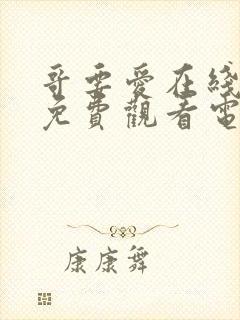 哥要愛在綫
免費觀看電
康康舞